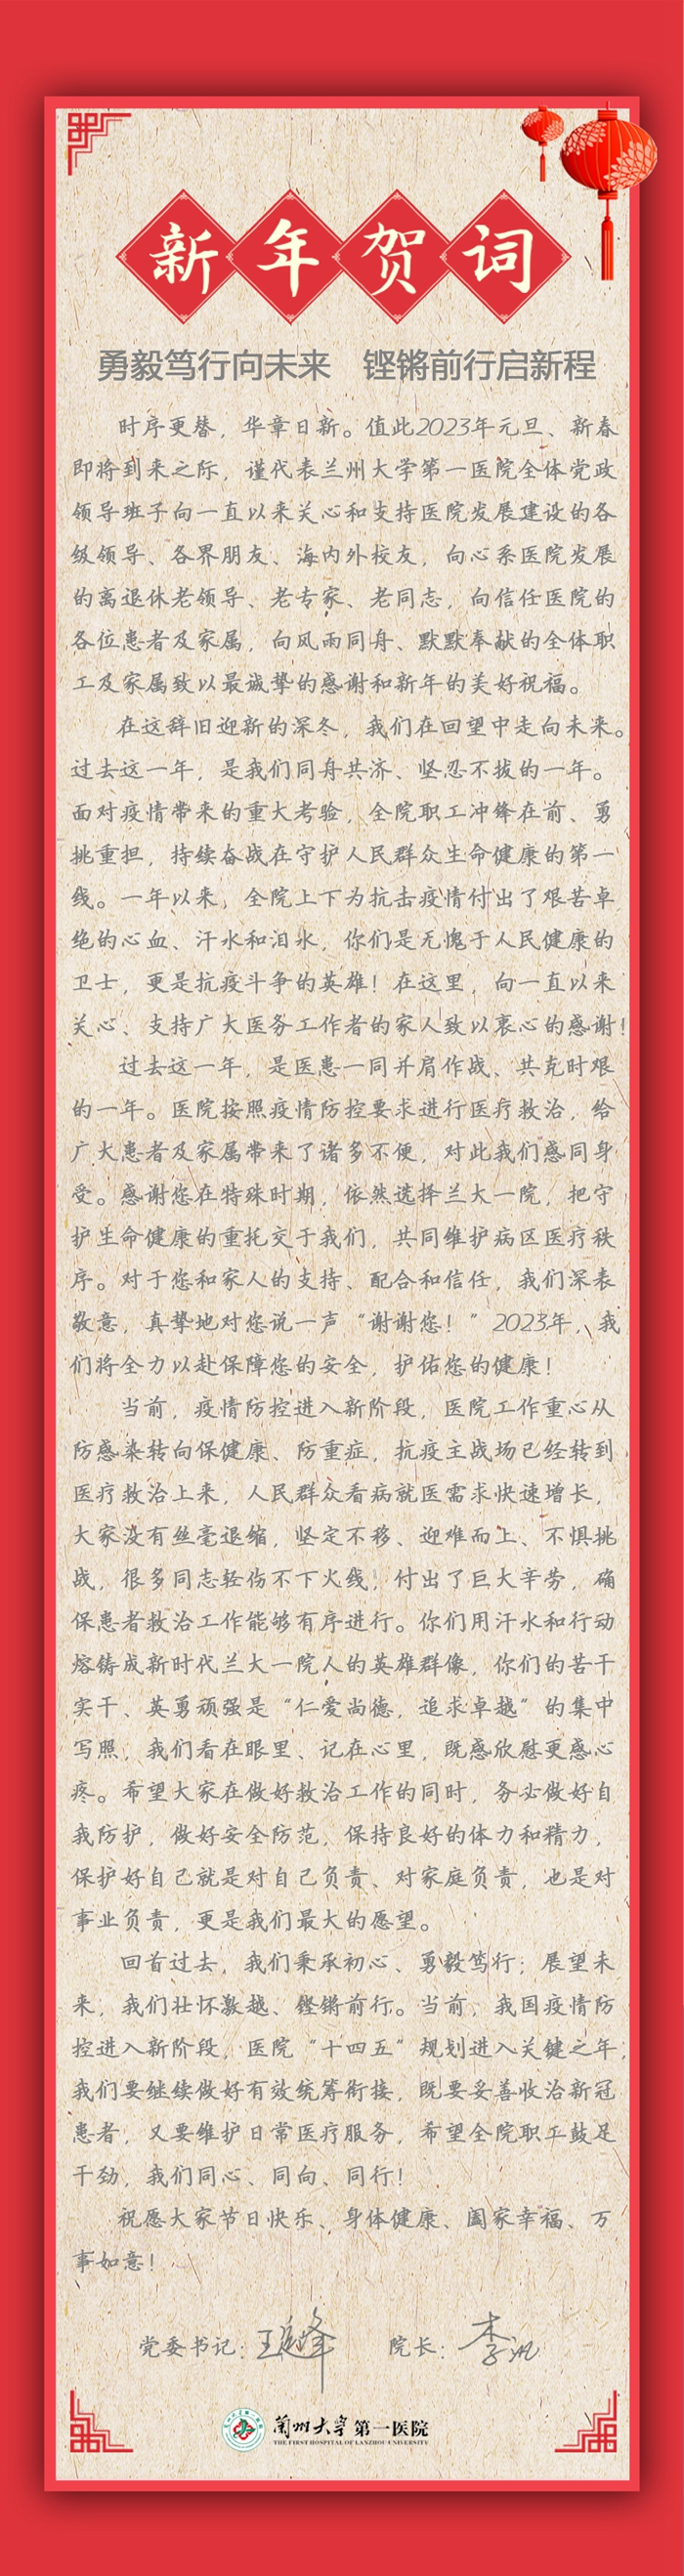 新年贺词
勇毅笃行向未来 铿锵前行启新程
时序更替，华章日新。值此2023年元旦、新春
即将到来之际，谨代表兰州大学第一医院全体党政
领导班子向一直以来关心和支持医院发展建设的各
级领导、各界朋友、海内外校友，向心系医院发展
的离退休老领导、老专家、老同志，向信任医院的
各位患者及家属，向风雨同舟、默默奉献的全体职
工及家属致以最诚挚的感谢和新年的美好祝福。
在这辞旧迎新的深冬，我们在回望中走向未来。
过去这一年，是我们同舟共济、坚忍不拔的一年。
面对疫情带来的重大考验，全院职工冲锋在前、勇
挑重担，持续奋战在守护人民群众生命健康的第一
线。一年以来，全院上下为抗击疫情付出了艰苦卓
绝的心血、汗水和泪水，你们是无愧于人民健康的
卫士，更是抗疫斗争的英雄！在这里，向一直以来
关心、支持广大医务工作者的家人致以衷心的感谢！
过去这一年，是医患一同并肩作战、共克时艰
的一年。医院按照疫情防控要求进行医疗救治，给
广大患者及家属带来了诸多不便，对此我们感同身
受。感谢您在特殊时期，依然选择兰大一院，把守
护生命健康的重托交于我们，共同维护病区医疗秩
序。对于您和家人的支持、配合和信任，我们深表
敬意，真挚地对您说一声“谢谢您！”2023年，我
们将全力以赴保障您的安全，护佑您的健康！
当前，疫情防控进入新阶段，医院工作重心从
防感染转向保健康、防重症，抗疫主战场已经转到
医疗救治上来，人民群众看病就医需求快速增长，
大家没有丝毫退缩，坚定不移、迎难而上、不惧挑
战，很多同志轻伤不下火线，付出了巨大辛劳，确
保患者救治工作能够有序进行。你们用汗水和行动
熔铸成新时代兰大一院人的英雄群像，你们的苦干
实干、英勇顽强是“仁爱尚德，追求卓越”的集中
写照，我们看在眼里、记在心里，既感欣慰更感心
疼。希望大家在做好救治工作的同时，务必做好自
我防护，做好安全防范，保持良好的体力和精力，
保护好自己就是对自己负责、对家庭负责，也是对
事业负责，更是我们最大的愿望。
回首过去，我们秉承初心、勇毅笃行；展望未
来，我们壮怀激越、铿锵前行。当前，我国疫情防
控进入新阶段，医院“十四五”规划进入关键之年，
我们要继续做好有效统筹衔接，既要妥善收治新冠
患者，又要维护日常医疗服务，希望全院职工鼓足
干劲，我们同心、同向、同行！
祝愿大家节日快乐、身体健康、阖家幸福、万
事如意！
党委书记： 院长：
兰州大学第一医院
THE FIRST HOSPITAL OF LANZHOU UNIVERSITY